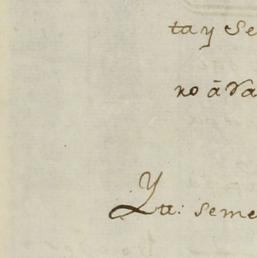 ta y se
no ā va
Ytt: seme